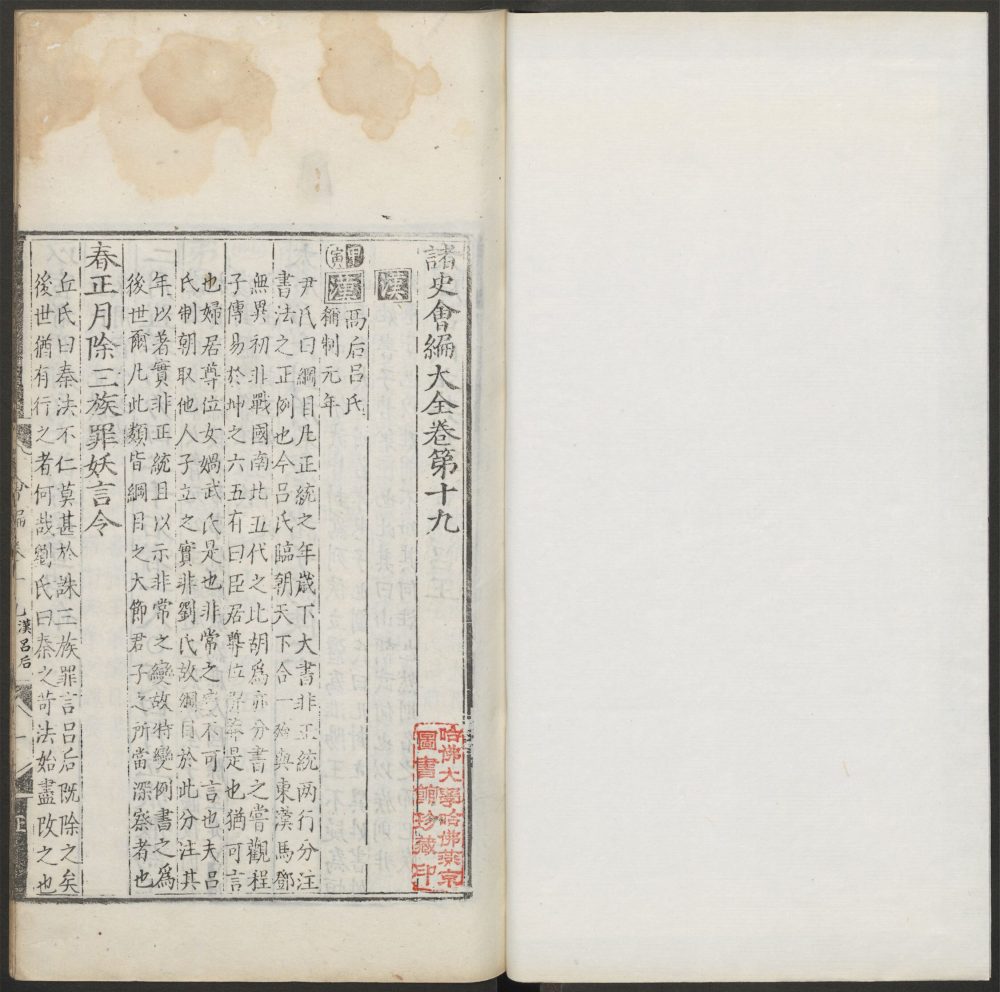 諸史會編大全卷第十九
漢
甲寅 漢 高后呂氏
稱制元年
尹氏曰綱目凡正統之年歲下大書非正統兩行分注
書法之正例也今呂氏臨朝天下合一殆與東漢馬鄧
無異初非戰國南北五代之比胡為亦分書之嘗觀程
子傳易於坤之六五有曰臣居尊位羿莽是也猶可言
也婦居尊位女媧武氏是也非常之變不可言也夫呂
氏制朝取他人子立之實非劉氏故綱目於此分注其
年以著實非正統且以示非常之變故特變例書之為
後世爾凡此類皆綱目之大節君子之所當深察者也
春正月除三族罪妖言令
丘氏曰秦法不仁莫甚於誅三族罪言呂后既除之矣
後世猶有行之者何哉劉氏曰秦之苛法始盡改之也
會編卷十九漢呂后 一
哈佛大學哈佛燕京
圖書館珍藏印